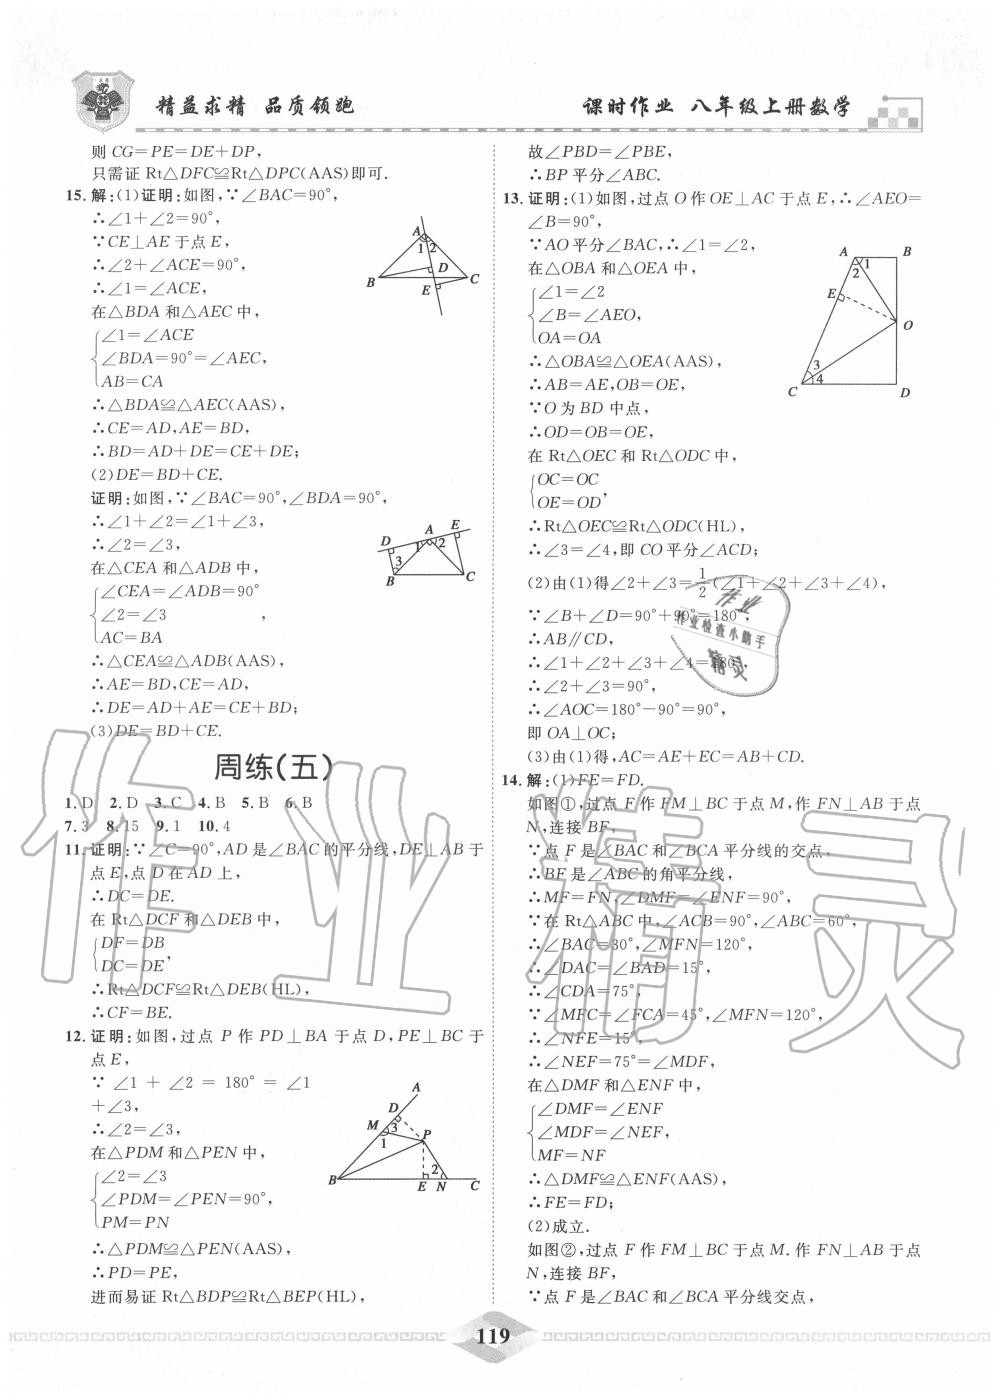 精益求精 品质领跑
课时作业 八年级上册数学
则 CG=PE=DE+DP,
只需证 Rt△DFC≌Rt△DPC(AAS)即可.
15.解:(1)证明:如图,∵∠BAC=90°,
∴∠1+∠2=90°,
∵CE⊥AE 于点 E,
∴∠2+∠ACE=90°,
∴∠1=∠ACE,
在△BDA 和△AEC 中,
∠1=∠ACE
∠BDA=90°=∠AEC,
AB=CA
∴△BDA≌△AEC(AAS),
∴CE=AD,AE=BD,
∴BD=AD+DE=CE+DE;
(2)DE=BD+CE.
证明:如图,∵∠BAC=90°,∠BDA=90°,
∴∠1+∠2=∠1+∠3,
∴∠2=∠3,
在△CEA 和△ADB 中,
∠CEA=∠ADB=90°
∠2=∠3 ,
AC=BA
∴△CEA≌△ADB(AAS),
∴AE=BD,CE=AD,
∴DE=AD+AE=CE+BD;
(3)DE=BD+CE.
A
1 2
D
B
C
E
D
A
E
1 2
3
B
C
周练(五)
1.D 2.D 3.C 4.B 5.B 6.B
7.3 8.15 9.1 10.4
11.证明:∵∠C=90°,AD 是∠BAC 的平分线,DE⊥AB 于
点 E,点 D 在 AD 上,
∴DC=DE.
在 Rt△DCF 和△DEB 中,
DF=DB
DC=DE,
∴Rt△DCF≌Rt△DEB(HL),
∴CF=BE.
12.证明:如图,过点 P 作 PD⊥BA 于点 D,PE⊥BC 于
点 E,
∵ ∠1 + ∠2 = 180° = ∠1
+∠3,
∴∠2=∠3,
在△PDM 和△PEN 中,
∠2=∠3
∠PDM=∠PEN=90°,
PM=PN
∴△PDM≌△PEN(AAS),
∴PD=PE,
进而易证 Rt△BDP≌Rt△BEP(HL),
A
D
M 3
1
P
2
B
E N C
故∠PBD=∠PBE,
∴BP 平分∠ABC.
13.证明:(1)如图,过点 O 作 OE⊥AC 于点 E,∴∠AEO=
∠B=90°,
∵AO 平分∠BAC,∴∠1=∠2,
在△OBA 和△OEA 中,
∠1=∠2
∠B=∠AEO,
OA=OA
∴△OBA≌△OEA(AAS),
∴AB=AE,OB=OE,
∵O 为 BD 中点,
∴OD=OB=OE,
在 Rt△OEC 和 Rt△ODC 中,
OC=OC
OE=OD,
∴Rt△OEC≌Rt△ODC(HL),
∴∠3=∠4,即 CO 平分∠ACD;
(2)由(1)得∠2+∠3=1/2(∠1+∠2+∠3+∠4),
∵∠B+∠D=90°+90°=180°,
∴AB∥CD,
∴∠1+∠2+∠3+∠4=180°,
∴∠2+∠3=90°,
∴∠AOC=180°-90°=90°,
即 OA⊥OC;
(3)由(1)得,AC=AE+EC=AB+CD.
A
B
1
2
E
O
3
4
C
D
14.解:(1)FE=FD.
如图①,过点 F 作 FM⊥BC 于点 M,作 FN⊥AB 于点
N,连接 BF,
∵点 F 是∠BAC 和∠BCA 平分线的交点,
∴BF 是∠ABC 的角平分线,
∴MF=FN,∠DMF=∠ENF=90°,
∵在 Rt△ABC 中,∠ACB=90°,∠ABC=60°,
∴∠BAC=30°,∠MFN=120°,
∴∠DAC=∠BAD=15°,
∴∠CDA=75°,
∵∠MFC=∠FCA=45°,∠MFN=120°,
∴∠NFE=15°,
∴∠NEF=75°=∠MDF,
在△DMF 和△ENF 中,
∠DMF=∠ENF
∠MDF=∠NEF,
MF=NF
∴△DMF≌△ENF(AAS),
∴FE=FD;
(2)成立.
如图②,过点 F 作 FM⊥BC 于点 M.作 FN⊥AB 于点
N,连接 BF,
∵点 F 是∠BAC 和∠BCA 平分线交点,
119
作业精灵
作业
作业检查小助手
精灵